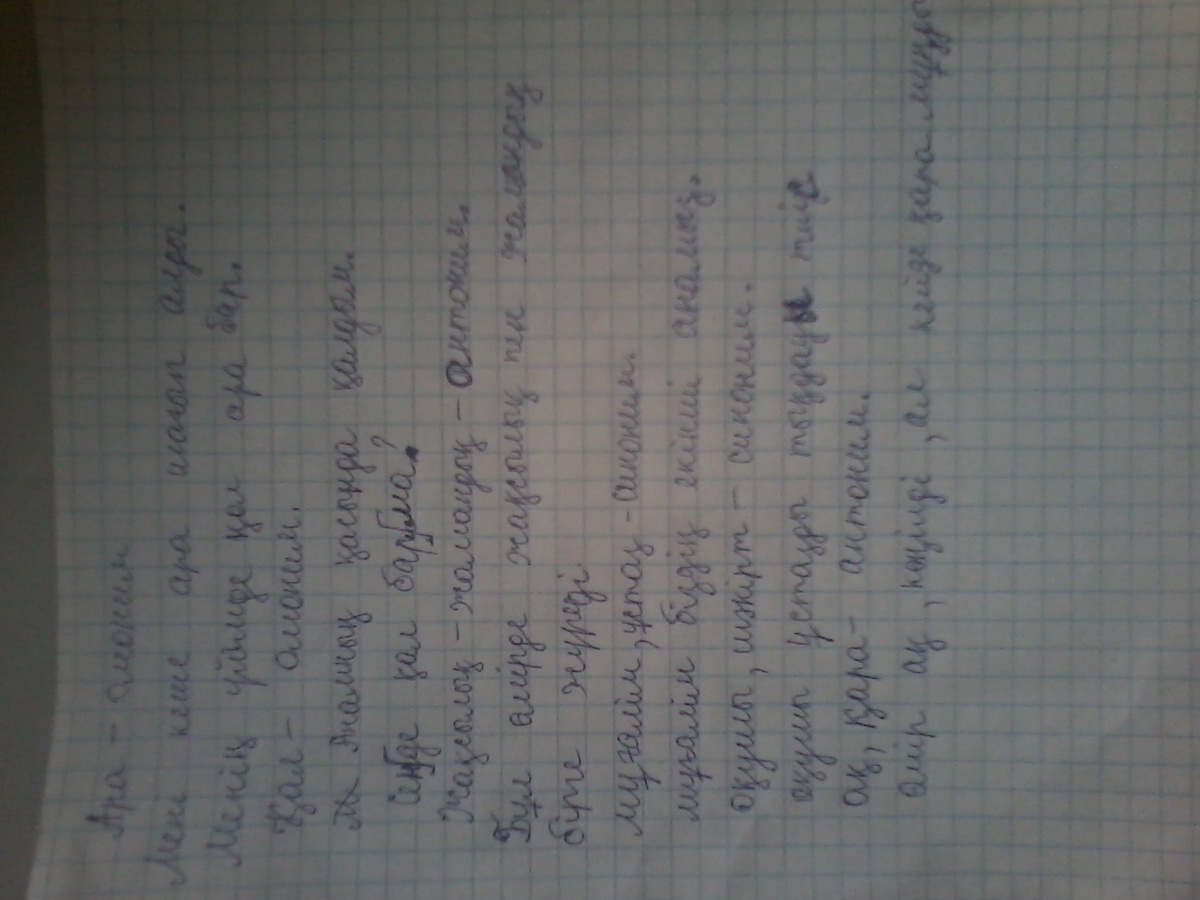 Ара - омоним
Мені кеше ара шағып алды.
Менің үйімде қол ара бар.
Қал - омоним.
Анамның қасында қалдым.
Сізде қал барма?
Жақсылық - жамандық - антоним.
Бұл өмірде жақсылық пен жамандық
бірге жүреді
мұғалім, ұстаз - синоним.
мұғалім біздің екінші анамыз.
оқушы, шәкірт - синоним.
оқушы ұстазды тыңдауы тиіс
ақ, қара - антоним.
өмір ақ, көңілді, ал кейде қара мұңды